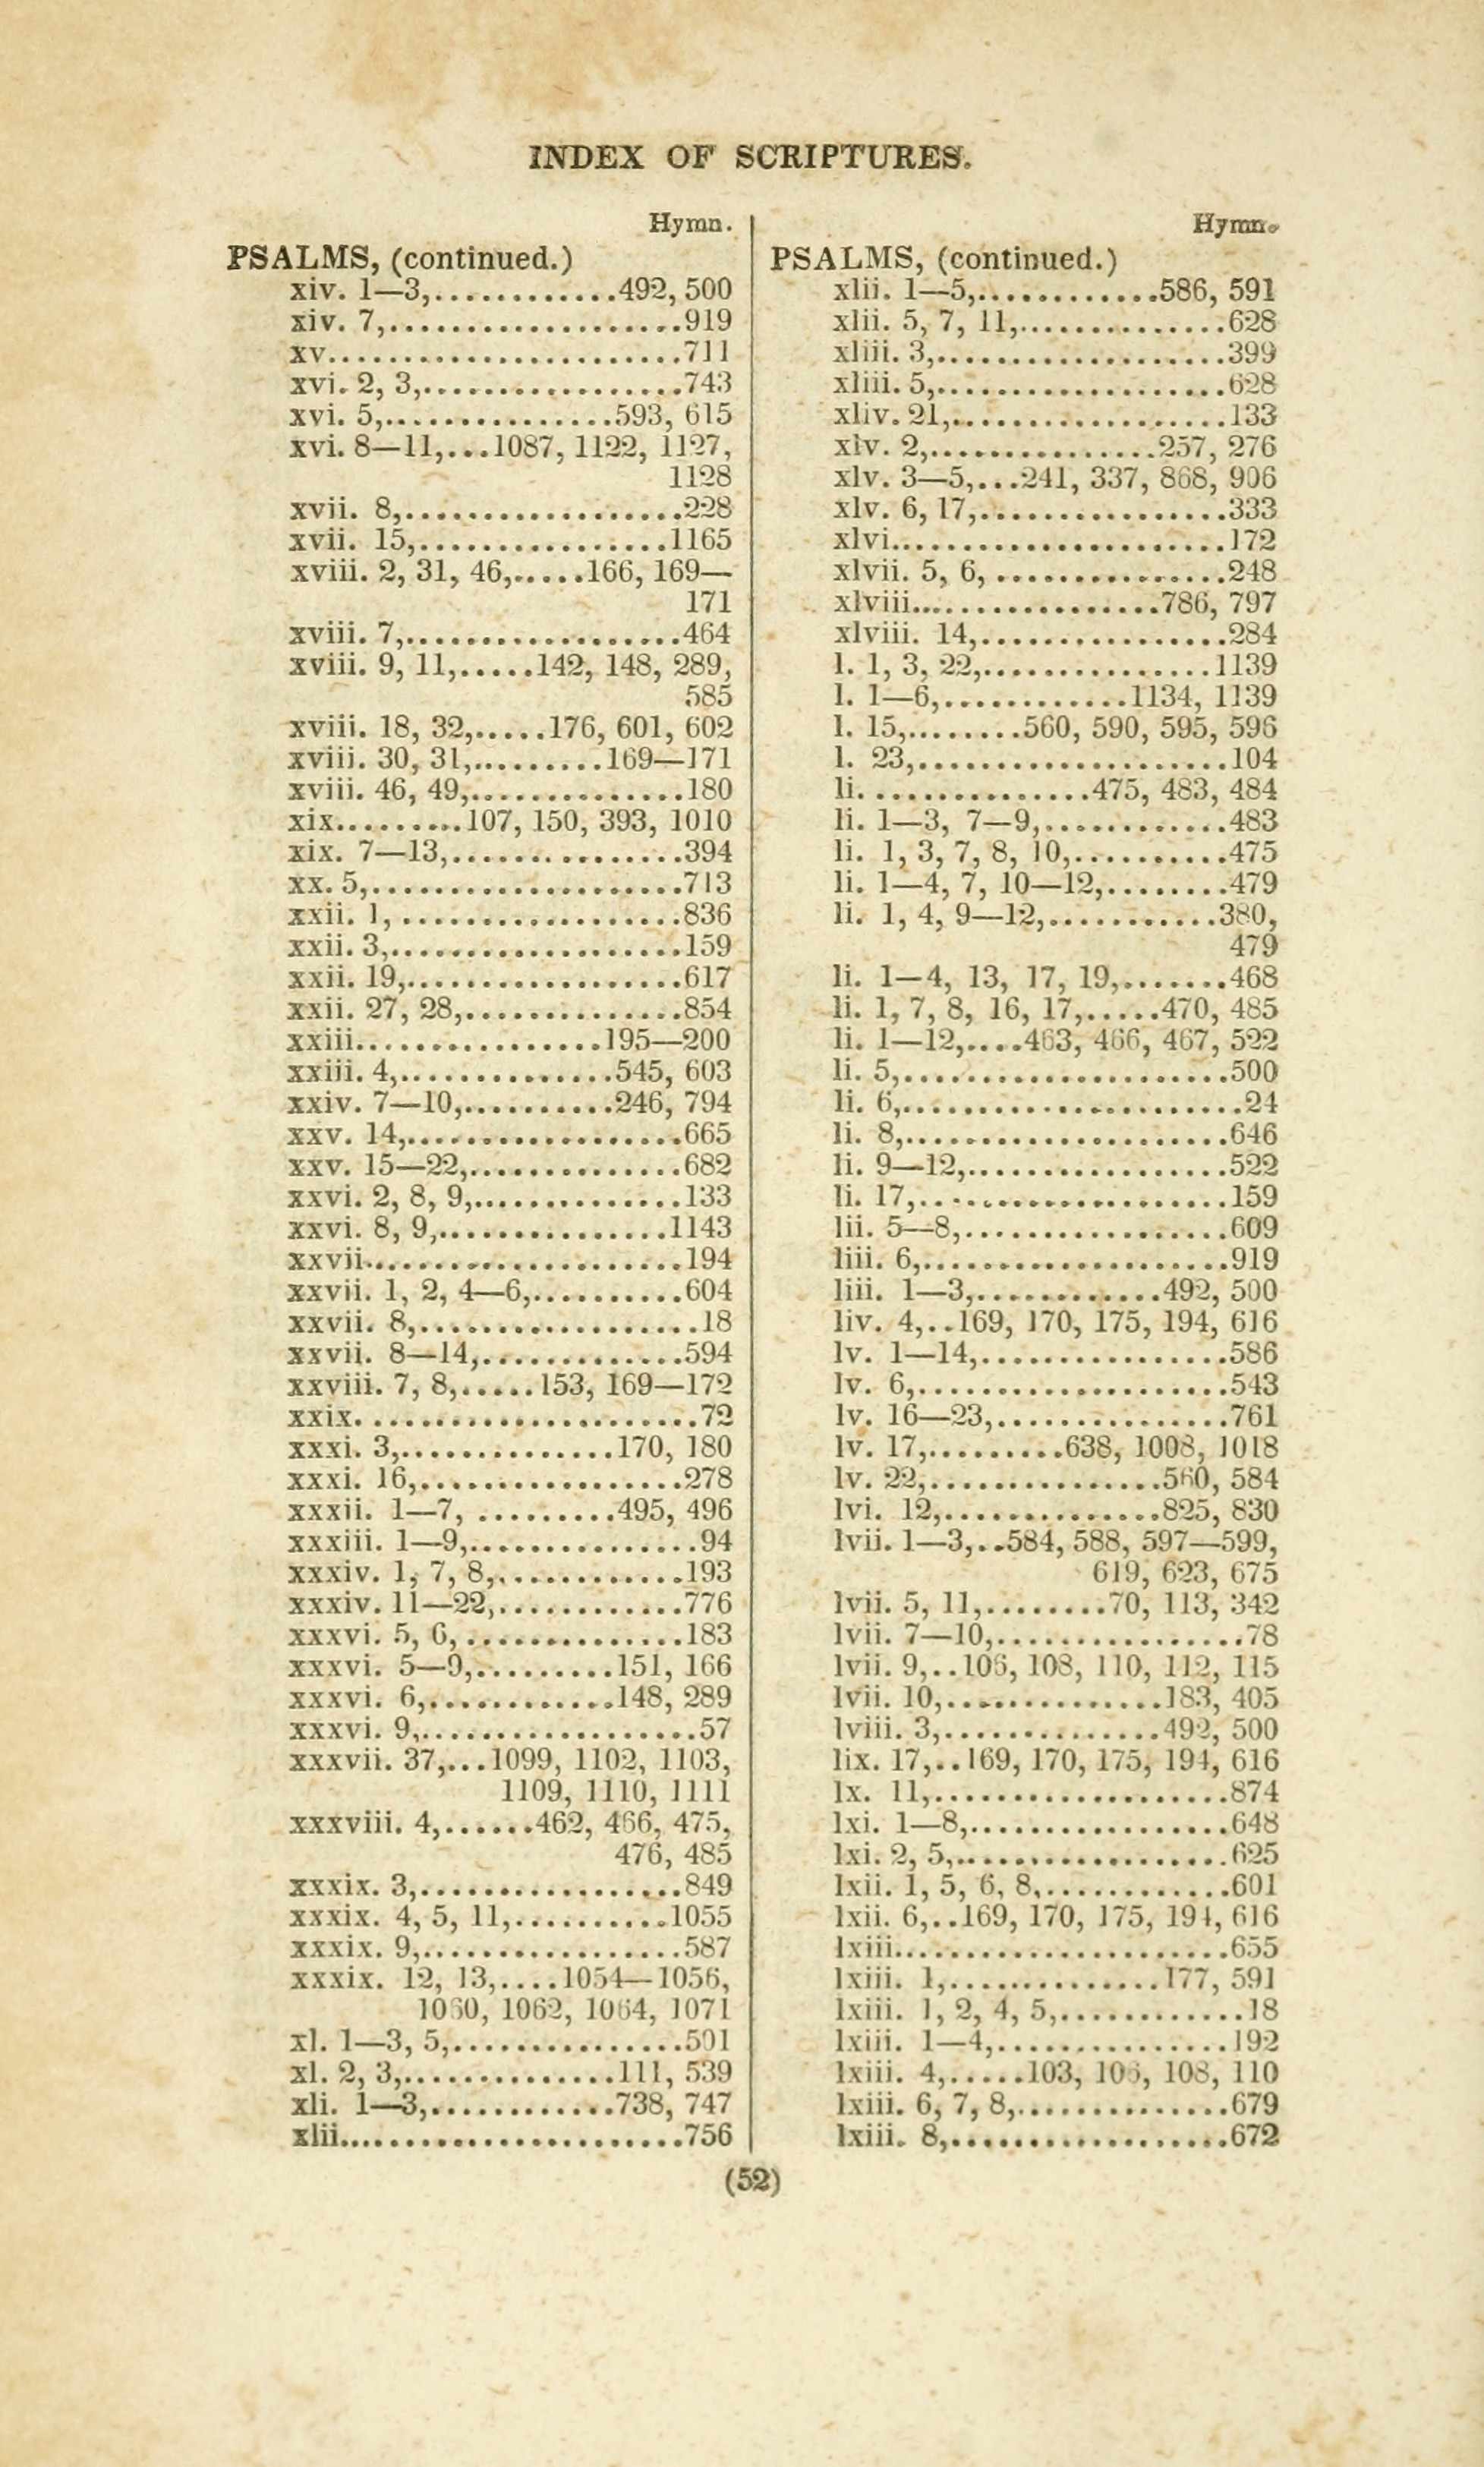 INDEX OF SCRIPTURES.
Hymn.
PSALMS, (continued.)
xiv. 1—3,............492, 500
xiv. 7,...................919
xv.......................711
xvi. 2, 3,.................743
xvi. 5,...............593, 615
xvi. 8—11,...1087, 1122, 1127,
1128
xvii. 8,..................228
xvii. 15,................1165
xviii. 2, 31, 46,.....166, 169—
171
xviii. 7,..................464
xviii. 9, 11,.....142, 148, 289,
585
xviii. 18, 32,.....176, 601, 602
xviii. 30, 31,.........169—171
xviii. 46, 49,..............180
xix.........107, 150, 393, 1010
xix. 7—13,...............394
xx. 5,....................713
xxii. 1, ..................836
xxii. 3,...................159
xxii. 19,..................617
xxii. 27, 28,..............854
xxiii................195—200
xxiii. 4,..............545, 603
xxiv. 7—10,..........246, 794
xxv. 14,..................665
xxv. 15—22,..............682
xxvi. 2, 8, 9,..............133
xxvi. 8, 9,...............1143
xxvii.....................194
xxvii. 1, 2, 4—6,..........604
xxvii. 8,..................18
xxvii. 8—14,.............594
xxviii. 7, 8,.....153, 169—172
xxix. .....................72
xxxi. 3,..............170, 180
xxxi. 16,.................278
xxxii. 1—7, .........495, 496
xxxiii. 1—9,...............94
xxxiv. 1, 7, 8,............193
xxxiv. 11—22,............776
xxxvi. 5, 6, ..............183
xxxvi. 5—9,.........151, 166
xxxvi. 6,............148, 289
xxxvi. 9,..................57
xxxvii. 37,...1099, 1102, 1103,
1109, 1110, 1111
xxxviii. 4,......462, 466, 475,
476, 485
xxxix. 3,.................849
xxxix. 4, 5, 11,..........1055
xxxix. 9,.................587
xxxix. 12, 13,....1054—1056,
1060, 1062, 1064, 1071
xl. 1—3, 5,...............501
xl. 2, 3,..............111, 539
xli. 1—3,............738, 747
xlii......................756
Hymn.
PSALMS, (continued.)
xlii. 1—5,............586, 591
xlii. 5, 7, 11,..............628
xliii. 3,...................399
xliii. 5,...................628
xliv. 21,..................133
xlv. 2,...............257, 276
xlv. 3—5,...241, 337, 868, 906
xlv. 6, 17,................333
xlvi......................172
xlvii. 5, 6, ...............248
xlviii.................786, 797
xlviii. 14,................284
l. 1, 3, 22,...............1139
l. 1—6,............1134, 1139
l. 15,........560, 590, 595, 596
l. 23,....................104
li. ...............475, 483, 484
li. 1—3, 7—9,............483
li. 1, 3, 7, 8, 10,..........475
li. 1—4, 7, 10—12,........479
li. 1, 4, 9—12,...........380,
479
li. 1—4, 13, 17, 19,.......468
li. 1, 7, 8, 16, 17,.....470, 485
li. 1—12,....463, 466, 467, 522
li. 5,.....................500
li. 6,......................24
li. 8,.....................646
li. 9—12,.................522
li. 17,....................159
lii. 5—8,.................609
liii. 6,....................919
liii. 1—3,............492, 500
liv. 4,..169, 170, 175, 194, 616
lv. 1—14,................586
lv. 6,....................543
lv. 16—23,...............761
lv. 17,.........638, 1008, 1018
lv. 22,...............560, 584
lvi. 12,..............825, 830
lvii. 1—3,..584, 588, 597—599,
619, 623, 675
lvii. 5, 11,........70, 113, 342
lvii. 7—10,................78
lvii. 9,..106, 108, 110, 112, 115
lvii. 10,..............183, 405
lviii. 3,..............492, 500
lix. 17,..169, 170, 175, 194, 616
lx. 11,...................874
lxi. 1—8,.................648
lxi. 2, 5,..................625
lxii. 1, 5, 6, 8,............601
lxii. 6,..169, 170, 175, 194, 616
lxiii......................655
lxiii. 1,..............177, 591
lxiii. 1, 2, 4, 5,............18
lxiii. 1—4,...............192
lxiii. 4,.....103, 106, 108, 110
lxiii. 6, 7, 8,..............679
lxiii. 8,..................672
(52)